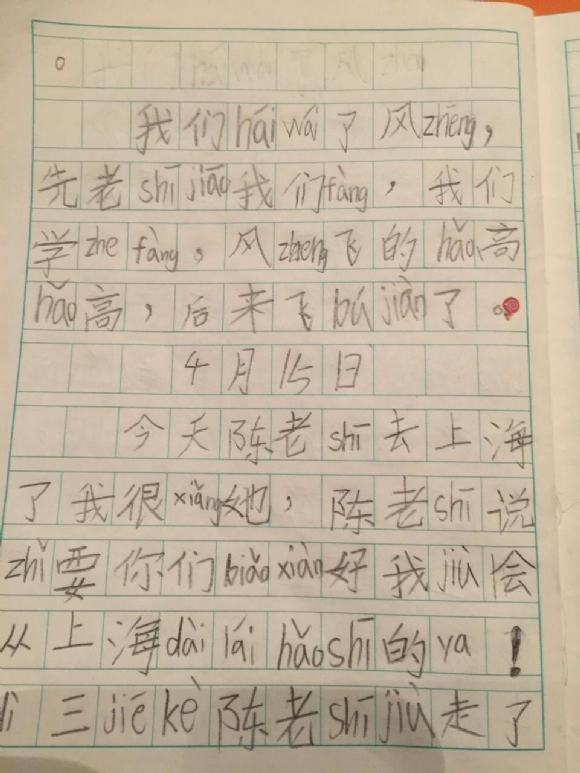 。
我们hái wái了风zhēng，
先老shī jiāo我们fàng，我们
学zhe fàng。风zheng飞的hǎo高
hǎo高，后来飞bú jiàn了。
4月15日
今天陈老shī去上海
了我很xiǎng她，陈老shī说
zhǐ要你们biǎo xiàn好我jiù会
从上海dài lái hǎo shī的ya！
三jiē kè陈老shī jiù走了